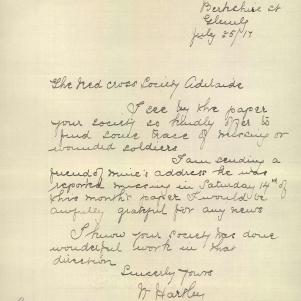 Berkshire St
Glenelg
July 25/17
The Red cross Society Adelaide
I see by the paper
your society so kindly offer to
find some trace of missing or
wounded soldiers
I am sending a
friend of mine's address he was
reported missing in Saturday 14th of
this month's paper I would be
awfully grateful for any news
I know your society has done
wonderful work in that
direction
Sincerely Yours
Hartley